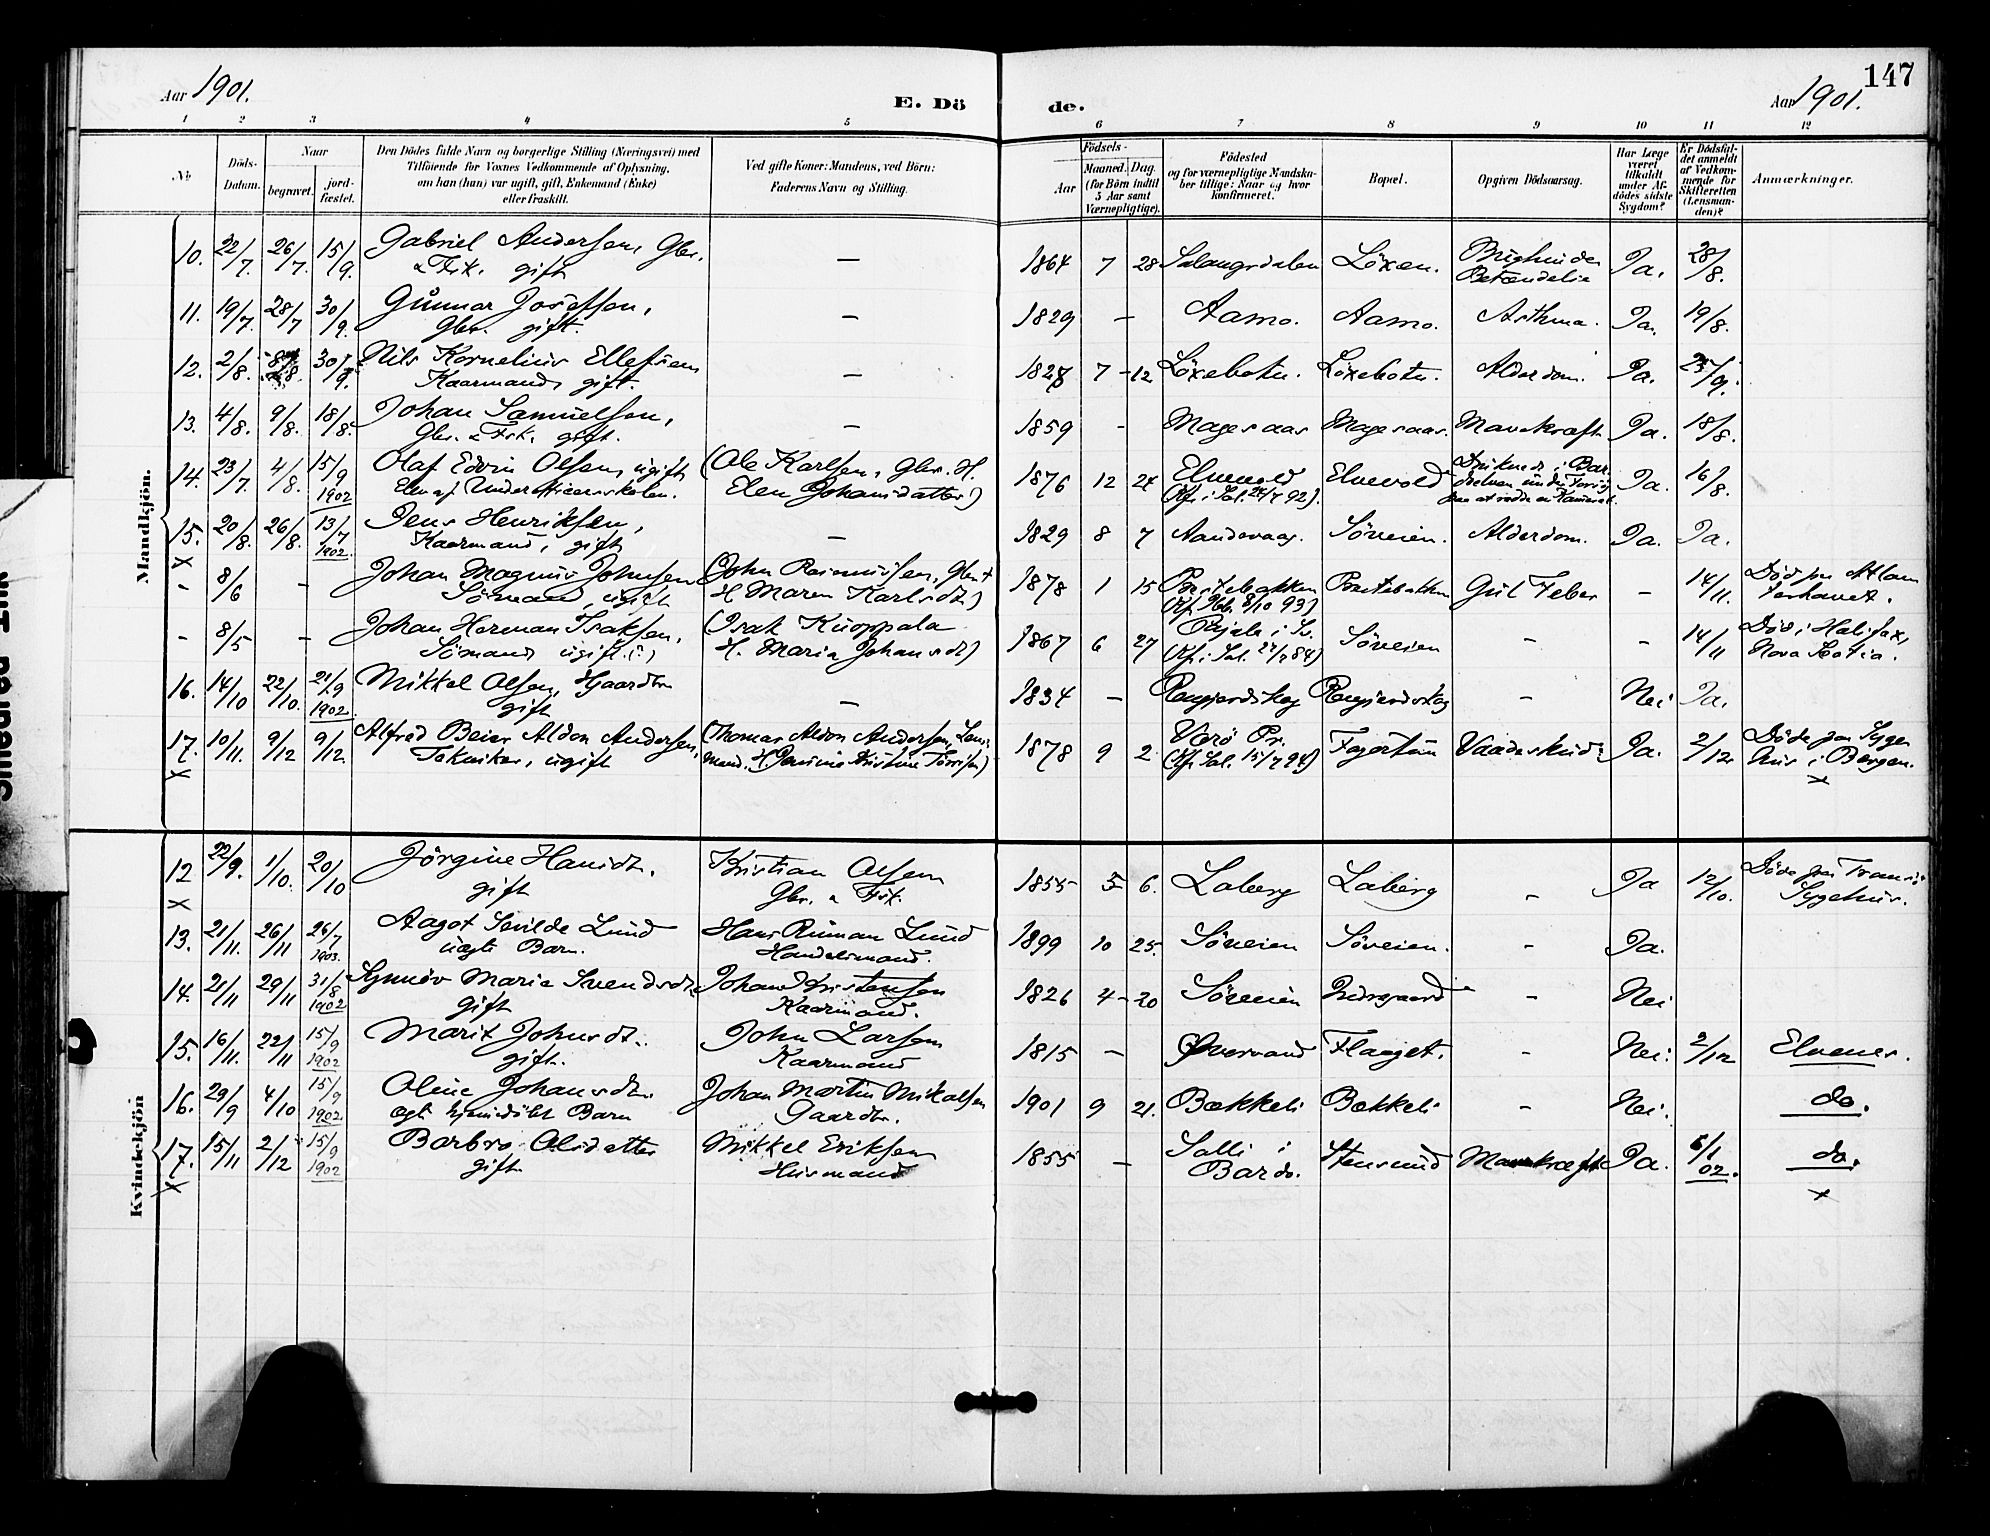 147
Aar 1901.
E. Dö de.
Aar 1901.
1 2 3 4 5 6 7 8 9 10 11 12
No.
Döds-Datum.
Naar
begravet.
jord-fæstet.
Den Dödes fulde Navn og borgerlige Stilling (Næringsvei) med
Tilföiende for Voxnes Vedkommende af Oplysning,
om han (hun) var ugift, gift, Enkemand (Enke)
eller fraskilt.
Ved gifte Koner: Mandens, ved Börn:
Faderens Navn og Stilling.
Födsels-
Aar
Maaned. Dag.
(for Börn indtil
5 Aar samt
Værnepligtige).
Födested
og for værnepligtige Mandska-
ber tillige: Naar og hvor
konfirmeret.
Bopæl.
Opgiven Dödsaarsag.
Har Læge
været
tilkaldt
under Af-
dödes sidste
Sygdom?
Er Dödsfal-
det anmeldt
af Vedkom-
mende for
Skifteretten
(Lensman-
den)?
Anmærkninger.
Mandkjön.
10. 22/7. 26/7. 15/9. Gabriel Andersen, Gbr. — 1864 7 28 Salangsdalen Löxen. Ja. 28/8.
& Fsk. gift Betændelse
11. 19/7. 28/7 30/9. Gunnar Josefsen, — 1829 — Aamo. Aamo. Asthma. Ja. 19/8.
Gbr. gift.
12. 2/8. 30/9. Nils Kornelius Ellefsen — 1827 7 - 12 Löxebotn. Löxebotn. Alderdom. Ja. 25/9.
Kaarmand, gift.
13. 4/8. 9/8. 18/8. Johan Samuelsen, — 1859 - Magesaas Magesaas. Mavekræft. Ja. 18/8.
Gbr. & Fsk. gift.
14. 23/7. 4/8. 15/9 1902 Olaf Edvin Olsen, ugift (Ole Karlsen, Gbr. H. 1876 12 24 Elvevold Elvevold Druknede i Bar- Ja. 16/8.
Elev af Underofficersskolen. Elen Johansdatter) (Kfr. i Sal. 24/7 92). delven under Forsög
paa at redde en Kamerat.
15. 20/8. 26/8. 13/7 1902. Jens Henriksen, — 1829 8 7 Aandevaag. Söveien. Alderdom. Ja. Ja.
x Kaarmand, gift
- 8/6 - Johan Magnus Johnsen (John Rasmussen, Gbr. + 1878 1 15 Brattebakken Gul Feber - 14/11. Död paa Atlan-
Sömand, ugift H. Maren Karlsdt.) (Kfr. Ibb. 8/10 93) terhavet.
- 8/5 - Johan Herman Isaksen, (Isak Kuoppala 1867 6 27 Pajala i Sv. Söveien - - 14/11 Död i Halifax,
Sömand ugift (?) H. Maria Johansdt) (Kfr. i Sal. 84) Nova Scotia.
16. 14/10 22/10. 21/9 1902. Mikkel Olsen, Gaardbr. — 1834 — - Nei Ja.
gift
17. 10/11. 9/12 9/12. Alfred Beier Aldon Andersen, (Thomas Aldon Andersen, Lens- 1878 9 2 Værö Pr. Fagertun Vaadeskud Ja. 2/12. Döde paa Syge-
x Tekniker, ugift mand. H. (Kfr. Sal. 15/7 94) hus i Bergen.
x
Kvindekjön
12 22/9. 1/10. 20/10 Jörgine Hansdt. Kristian Olsen 1855 5 6. Laberg Laberg - Ja 12/10. Döde paa Tromsö
x gift Gbr. & Fsk. Sygehus.
13. 21/11. 26/11 26/7 1903. Aagot Sevilde Lund Hans Ruman Lund 1899 10 25. Söveien Söveien. - Ja.
ægte Barn. Handelsmand.
14. 21/11 29/11 31/8 1902 Synnöv Maria Svendsdt. Johan Kristensen 1826 4 - 20 Söveien - Nei
gift Kaarmand.
15. 16/11. 22/11 15/9 1902 Marit Johnsdt. John Larsen 1815 — Övervand Flaaget. - Nei. 2/12 Elvenes.
gift. Kaarmand
16. 29/9 4/10 15/9 1902. Oline Johansdt. Johan Martin Mikalsen 1901 9 21. Bækkeli Bækkeli - Nei. do.
ægt. hjemdöbt Barn Gaardbr.
17. 15/11 2/12 15/9 1902 Barbro Olsdatter Mikkel Eriksen 1855 — Salli i Stensund Mavekræft Ja. 6/1 02. do.
x gift Husmand Bardo. x